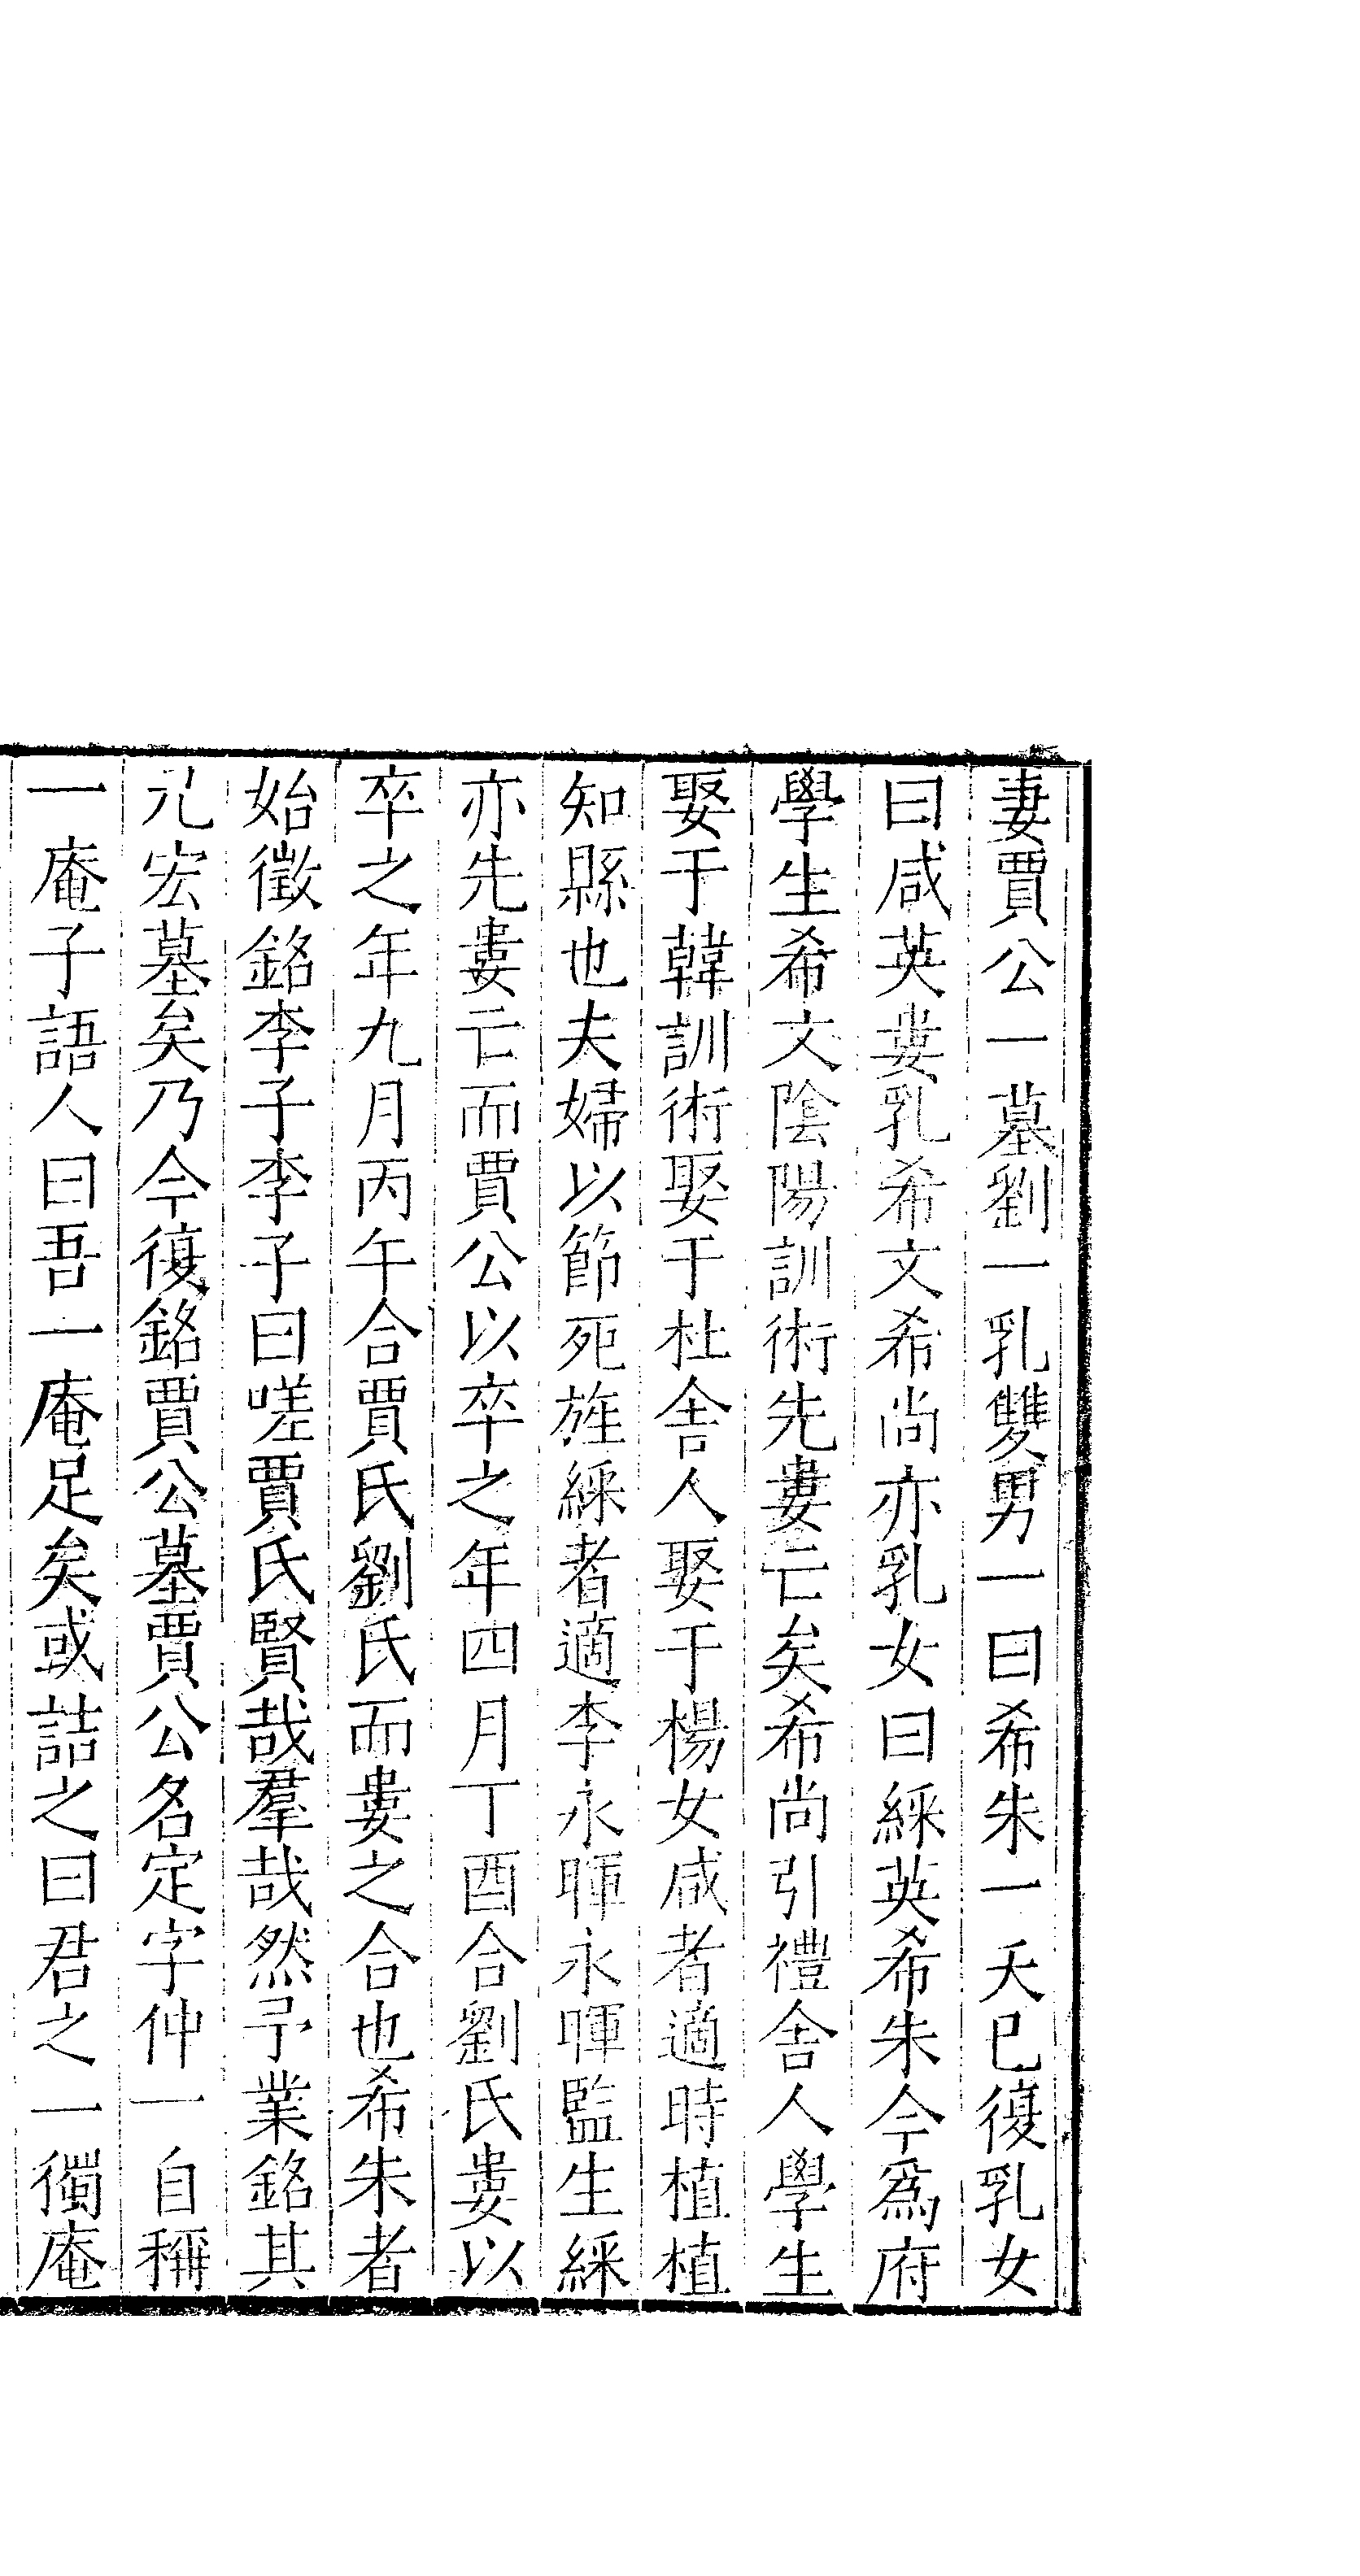 妻賈公一墓劉一乳雙男一曰希朱一夭已復乳女
曰咸英婁乳希文希尚亦乳女曰綵英希朱今爲府
學生希文陰陽訓術先婁亡矣希尚引禮舍人學生
娶于韓訓術娶于杜舍人娶于楊女咸者適時植植
知縣也夫婦以節死旌綵者適李永暉永暉監生綵
亦先婁亡而賈公以卒之年四月丁酉合劉氏婁以
卒之年九月丙午合賈氏劉氏而婁之合也希朱者
始徵銘李子李子曰嗟賈氏賢哉羣哉然予業銘其
兄宏墓矣乃今復銘賈公墓賈公名定字仲一自稱
一庵子語人曰吾一庵足矣或詰之曰君之一獨庵